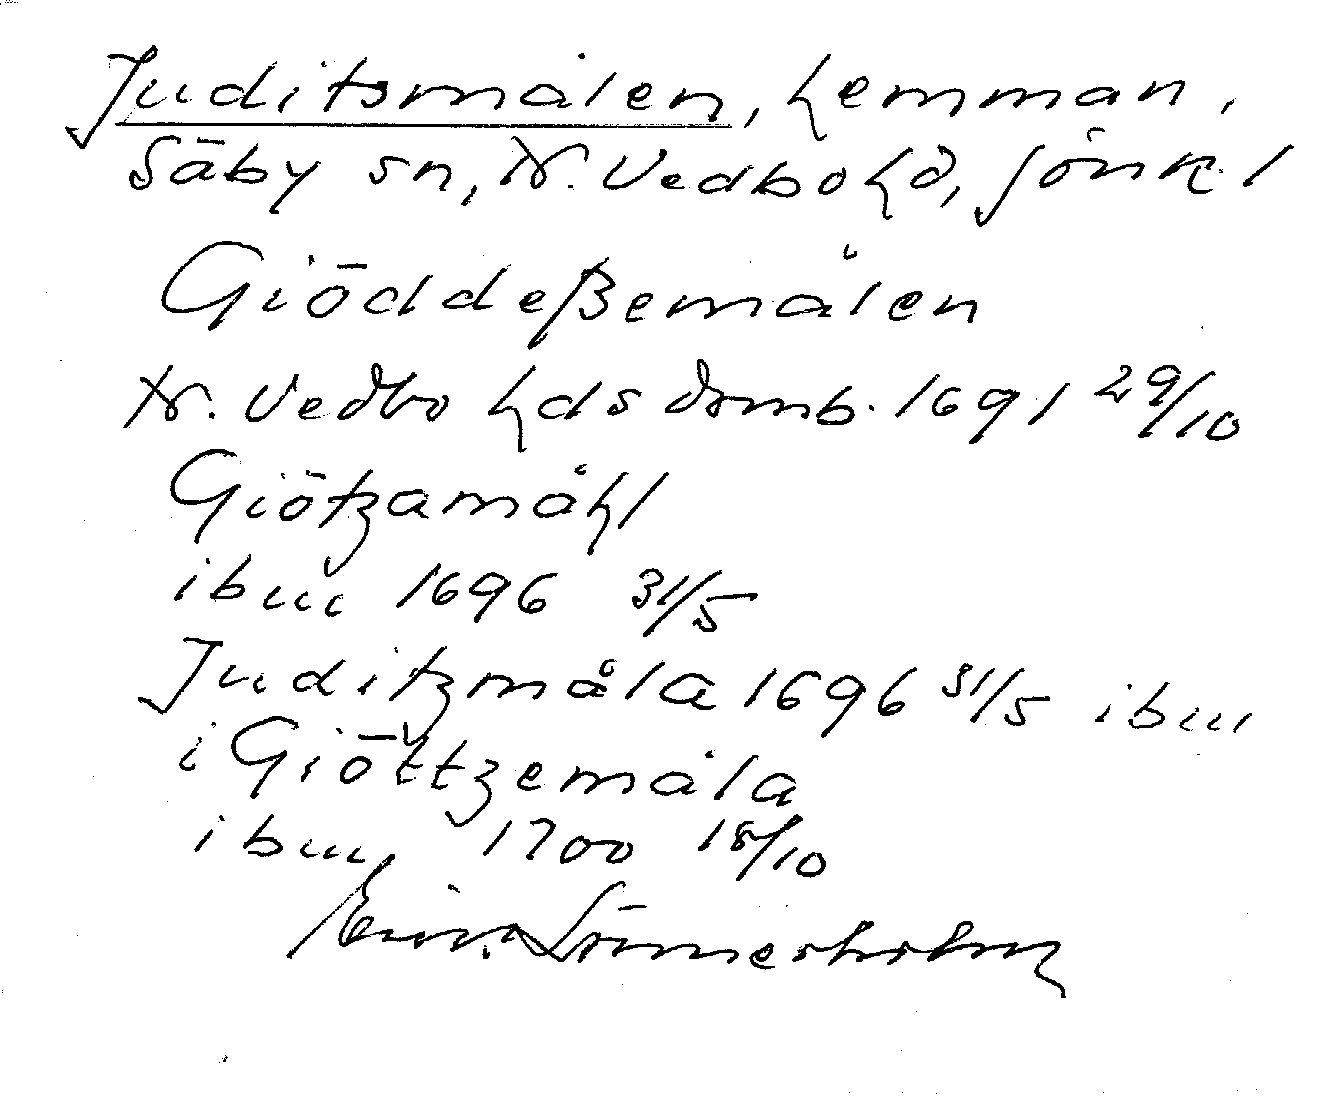 Juditsmålen, hemman,
Säby sn, N. Vedbo hd, Jönk. l
Giöddeßemålen
N. Vedbo hds domb. 1691 29/10
Giötzamåhl
ibm 1696 31/5
Juditzmåla 1696 31/5 ibm
i Giöttzemåla
ibm 1700 18/10